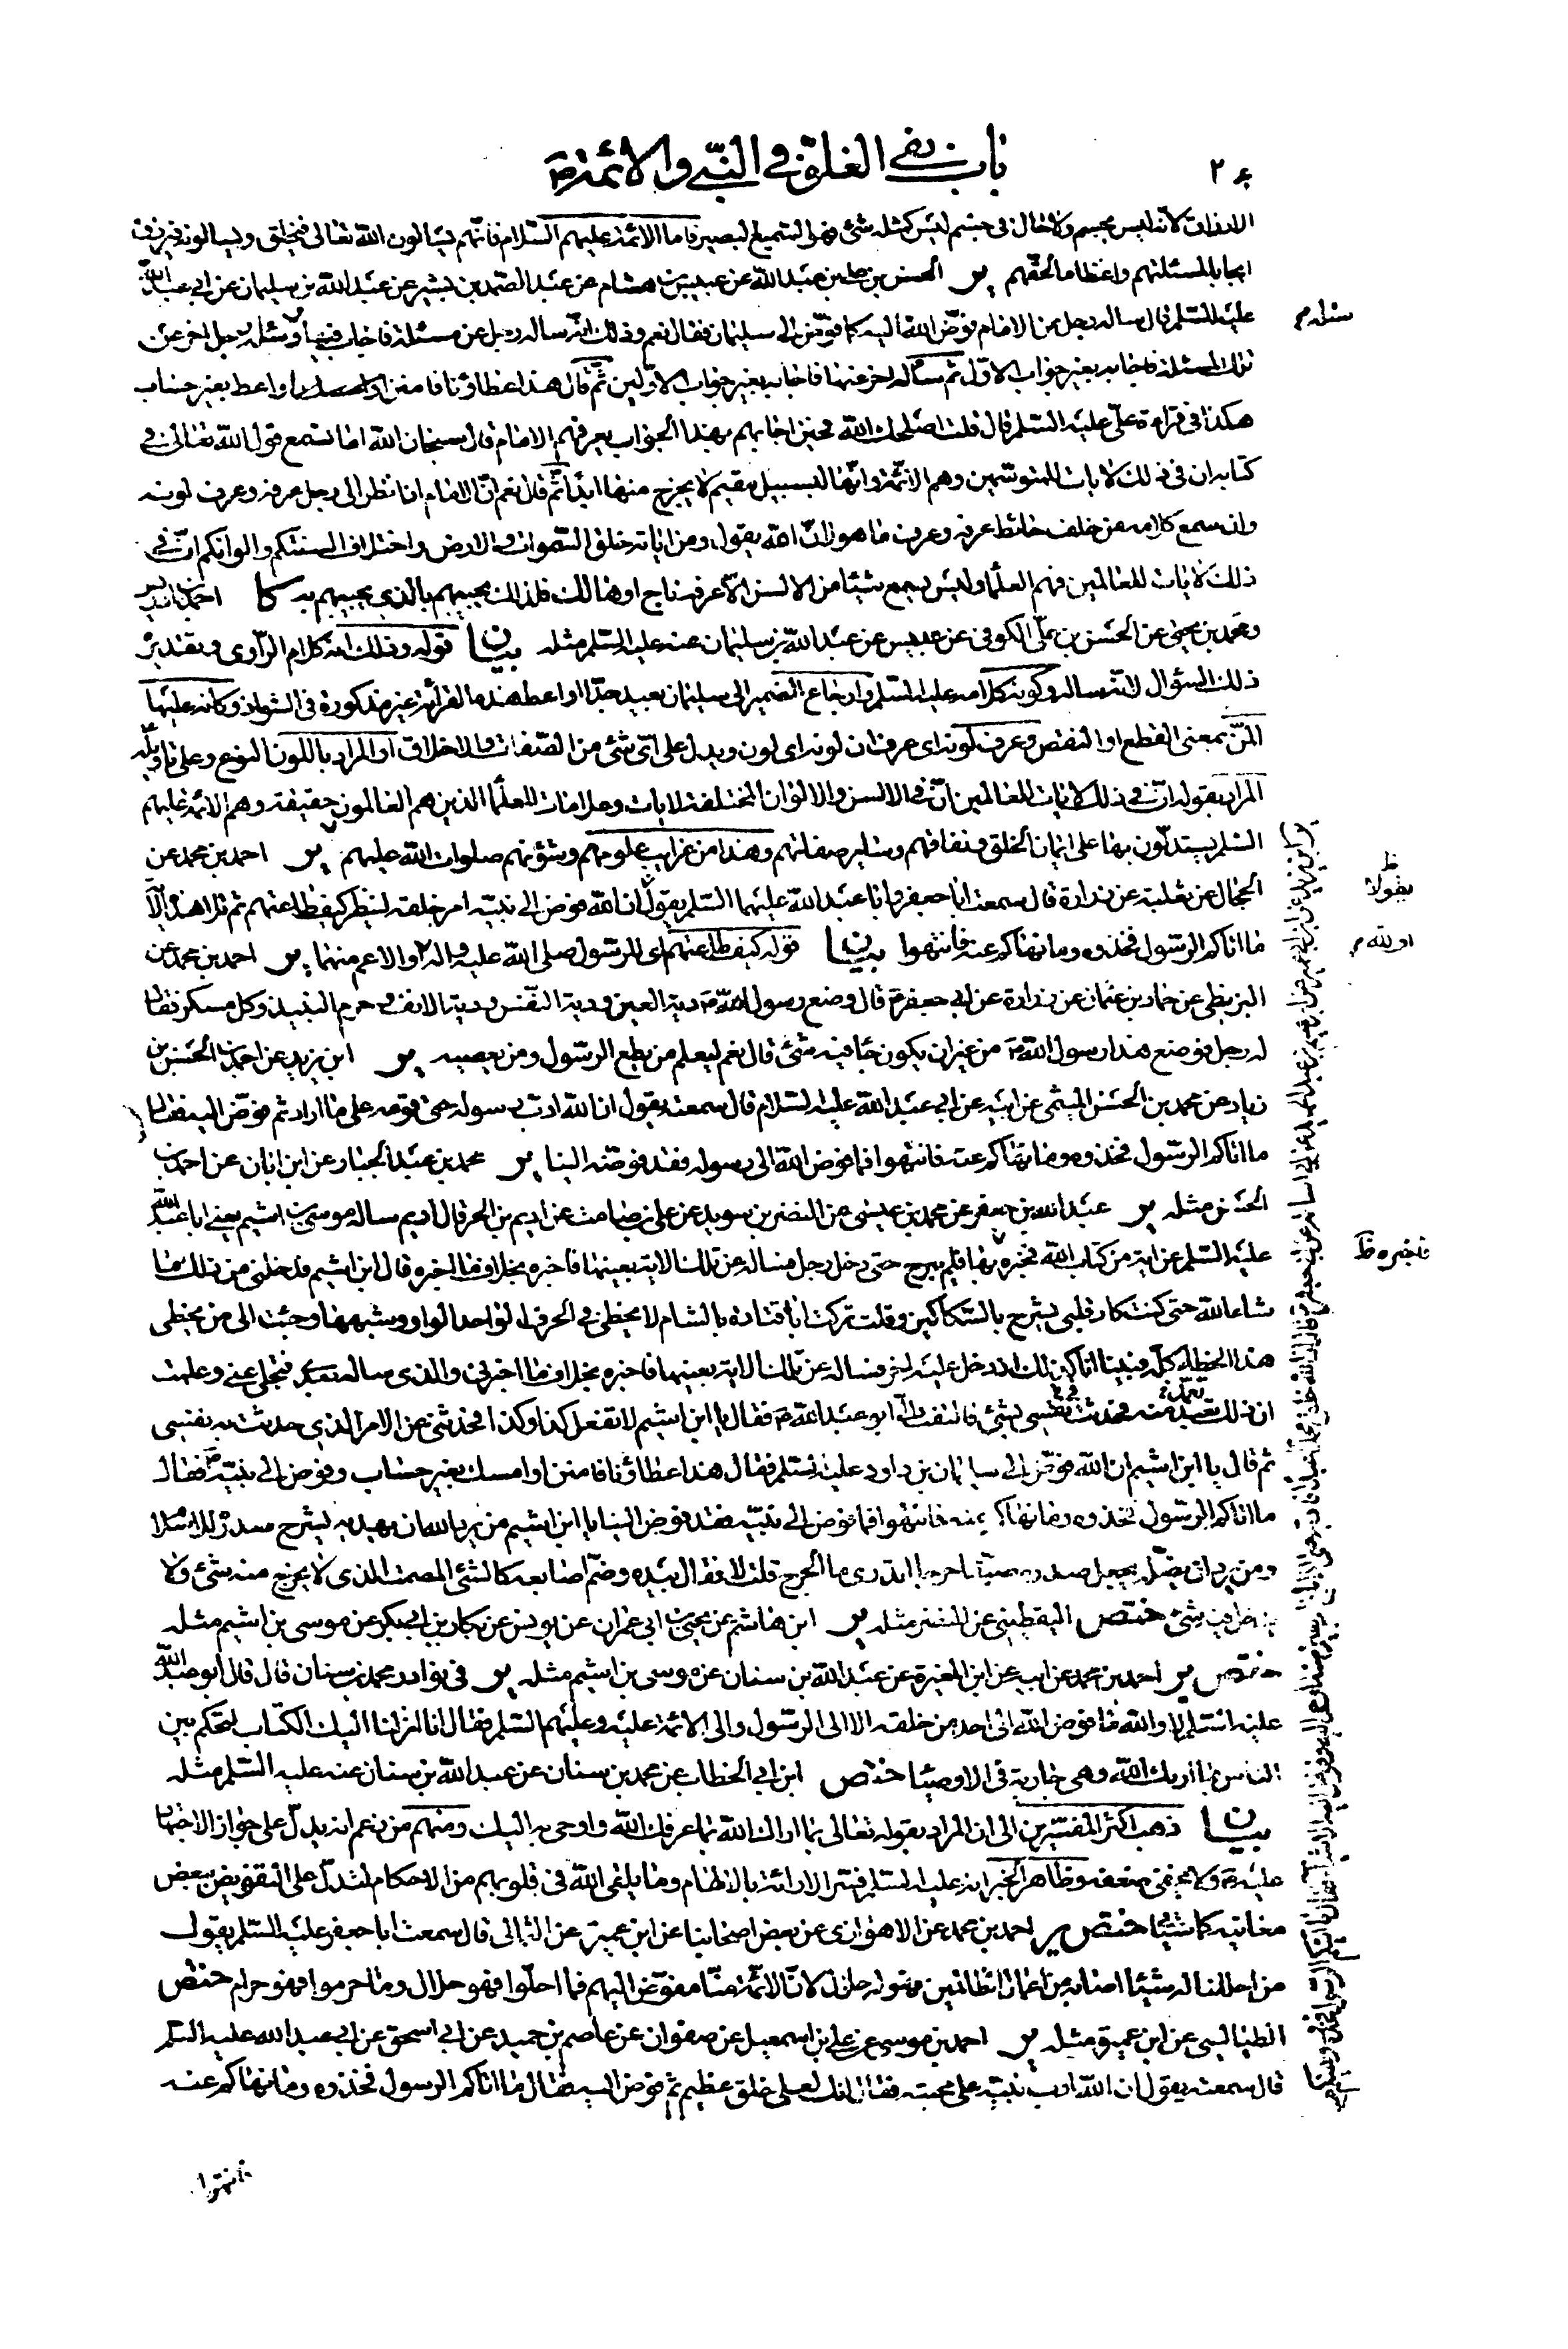 باب نفي الغلوّ في النبّي والائمّة ص
الارزاق لانه ليس بجسم ولا حال في جسم ليس كمثله شئ وهو السميع البصير فاما الائمة عليهم السلام فانهم يسالون الله تعالى فيخلق ويسالونه فيرزق
ايجابا لمسئلتهم واعظاما لحقهم ير الحسن بن علي بن عبد الله عن عبيس بن هشام عن عبد الصمد بن بشير عن عبد الله بن سليمان عن ابي عبد الله
عليه السلم قال سالته عن الامام فوّض الله اليه كما فوّض الى سليمان فقال نعم وذلك انه ساله رجل عن مسئلة فاجاب فيها وسئله رجل اخر عن
تلك المسئلة فاجابه بغير جواب الاوّل ثم سأله اخر عنها فاجابه بغير جواب الاوّلين ثمّ قال هذا عطاؤنا فامنن او اعط بغير حساب
هكذا في قراءة علي عليه السلم قال قلت اصلحك الله فحين اجابهم بهذا الجواب يعرفهم الامام قال سبحان الله اما تسمع قول الله تعالى في
كتابه ان في ذلك لايات للمتوسّمين وهم الائمّة وانّها لبسبيل مقيم لا يخرج منها ابدا ثمّ قال نعم انّ الامام اذا نظر الى رجل عرفه وعرف لونه
وان سمع كلامه من خلف حائط عرفه وعرف ما هو لانّ الله يقول ومن اياته خلق السموات والارض واختلاف السنتكم والوانكم انّ في
ذلك لايات للعالمين فهم العلماء وليس يسمع شيئا من الالسن الاّ عرف ناج او هالك فلذلك يجيبهم بالذي يجيبهم به كا احمد بن ادريس
ومحمد بن يحيى عن الحسن بن علي الكوفي عن عبيس عن عبد الله بن سليمان عنه عليه السلم مثله بيان قوله وذلك انه كلام الرّاوي وتقدير
ذلك السؤال لانه ساله وكونه كلامه عليه السلم وارجاع الضمير الى سليمان بعيد جدّا او اعط هذه القرائة غير مذكورة في الشواذ وكانه عليها
المنّ بمعنى القطع او النقص وعرف لونه اي عرف ان لونه اي لون ويدل على اي شئ من الصّفات والاخلاق او المراد باللون النوع وعلى تاويله ع
المراد بقوله ان في ذلك لايات للعالمين انّ في الالسن والالوان المختلفة لايات وعلامات للعلماء الذين هم العالمون حقيقة وهم الائمة عليهم
السلم يستدلّون بها على ايمان الخلق ونفاقهم وساير صفاتهم وهذا من غرايب علومهم وشؤنهم صلوات الله عليهم ير احمد بن محمد عن
الحجال عن ثعلبة عن زرارة قال سمعت ابا جعفر وابا عبد الله عليهما السلم يقول ان الله فوض الى نبيه امر خلقه لينظر كيف طاعتهم ثم تلا هذه الآية
ما اتاكم الرسول فخذوه وما نهاكم عنه فانتهوا بيان قوله كيف طاعتهم اي للرسول صلى الله عليه واله او الاعم منهما ير احمد بن محمد عن
البزنطي عن حماد بن عثمان عن زرارة عن ابي جعفر ع قال وضع رسول الله ص دية العين ودية النفس ودية الانف وحرم النبيذ وكل مسكر فقال
له رجل فوضع هذا رسول الله ص من غير ان يكون جاء فيه شئ قال نعم ليعلم من يطع الرسول ومن يعصيه ير ابن يزيد عن احمد بن الحسن بن
زياد عن محمد بن الحسن الميثمي عن ابيه عن ابي عبد الله عليه السلام قال سمعته يقول ان الله ادب رسوله حتى قومه على ما اراد ثم فوض اليه فقال
ما اتاكم الرسول فخذوه وما نهاكم عنه فانتهوا فما فوض الله الى رسوله فقد فوضه الينا ير محمد بن عبد الجبار عن ابن ابان عن احمد بن
الحسن مثله ير عبد الله بن جعفر عن محمد بن عيسى عن النضر بن سويد عن علي بن صامت عن اديم بن الحر قال اديم ساله موسى بن اشيم يعني ابا عبد الله
عليه السلم عن اية من كتاب الله فخبره بها فلم يبرح حتى دخل رجل فساله عن تلك الاية بعينها فاخبره بخلاف ما اخبره قال ابن اشيم فدخلني من ذلك ما
شاء الله حتى كنت كاد قلبي يشرح بالسكاكين وقلت تركت ابا قتادة بالشام لا يخطئ في الحرف الواحد الواو وشبهها وجئت الى من يخطي
هذا الخطاء كلّه فبينا انا كذلك اذ دخل عليه اخر فساله عن تلك الاية بعينها فاخبره بخلاف ما اخبرني والذي ساله بعدي فتجلى عني وعلمت
ان ذلك تعمّد منه فحدثت نفسي بشئ فالتفت اليّ ابو عبد الله ع فقال يا ابن اشيم لا تفعل كذا وكذا فحدثني عن الامر الذي حدثت به نفسي
ثم قال يا ابن اشيم ان الله فوّض الى سليمان بن داود عليه السلم فقال هذا عطاؤنا فامنن او امسك بغير حساب وفوض الى نبيّه ص فقال
ما اتاكم الرسول فخذوه وما نهاكم عنه فانتهوا فما فوض الى نبيّه فقد فوض الينا يا ابن اشيم من يرد الله ان يهديه يشرح صدره للاسلام
ومن يرد ان يضلّه يجعل صدره ضيّقا حرجا اتدري ما الحرج قلت لا فقال بيده وضمّ اصابعه كالشئ المصمت الذي لا يخرج منه شئ ولا
يدخل فيه شئ ختص اليقطيني عن النضر مثله ير ابن هاشم عن يحيى بن ابي عمران عن يونس عن بكار بن ابي بكر عن موسى بن اشيم مثله
ختص ير احمد بن محمد عن ابيه عن ابن المغيرة عن عبد الله بن سنان عن موسى بن اشيم مثله ير في نوادر محمد بن سنان قال قال ابو عبد الله
عليه السلم لا والله ما فوض الله الى احد من خلقه الا الى الرسول والى الائمة عليه وعليهم السلم فقال انا انزلنا اليك الكتاب لتحكم بين
الناس بما اريك الله وهي جارية في الاوصياء ختص ابن ابي الخطاب عن محمد بن سنان عن عبد الله بن سنان عنه عليه السلم مثله
بيان ذهب اكثر المفسّرين الى ان المراد بقوله تعالى بما اراك الله بما عرفك الله واوحى به اليك ومنهم من زعم انه يدلّ على جواز الاجتهاد
عليه ص ولا يخفى ضعفه وظاهر الخبر انه عليه السلم فسّر الارائة بالالهام وما يلقى الله في قلوبهم من الاحكام لتدلّ على التفويض ببعض
معانيه كما سياتي ختص ير احمد بن محمد عن الاهوازي عن بعض اصحابنا عن ابن عميرة عن الثمالي قال سمعت ابا جعفر عليه السلم يقول
من احللنا له شيئا اصابه من اعمال الظالمين فهو له حلال لانّ الائمّة منّا مفوّض اليهم فما احلّوا فهو حلال وما حرموا فهو حرام ختص
الطيالسي عن ابن عميرة مثله ير احمد بن موسى عن علي بن اسمعيل عن صفوان عن عاصم بن حميد عن ابي اسحق عن ابي عبد الله عليه السلم
قال سمعته يقول ان الله ادب نبيّه على محبته فقال انك لعلى خلق عظيم ثم فوض اليه فقال ما اتاكم الرسول فخذوه وما نهاكم عنه
فانتهوا
سئله م
يقولان
او لله م
فاخبره خ